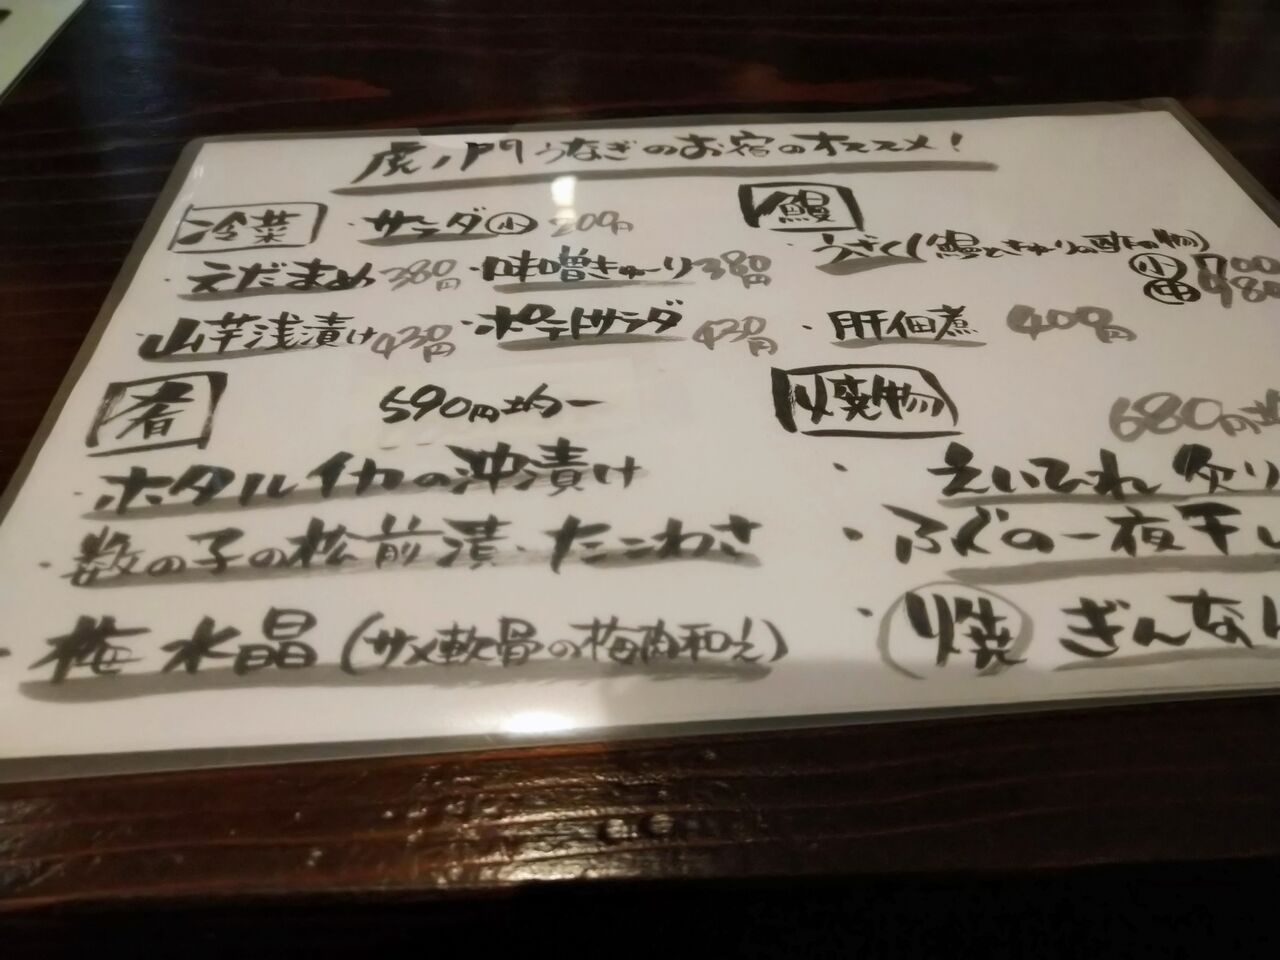 虎ノ門うなぎのお宿のオススメ!
冷菜
・サラダ小 200円
・えだまめ 380円 ・味噌きゅーり 380円
・山芋浅漬け 430円 ・ポテトサラダ 430円
肴 590円均一
・ホタルイカの沖漬け
・数の子の松前漬 ・たこわさ
・梅水晶(サメ軟骨の梅肉和え)
鰻
・うざく(鰻ときゅーりの酢の物)
小 700
中 980
・肝佃煮 400円
焼物 680円
・えいひれ 炙り
・ふぐの一夜干し
・焼 ぎんなん